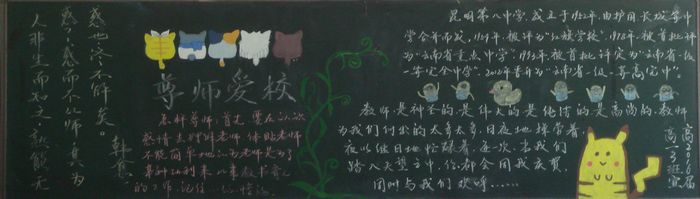 人非生而知之,孰能无
惑?惑而不从师,其为
惑也终不解矣。
韩愈
尊师爱校
怎样尊师,首先要在认识
感情上理解老师体贴老师
不能简单地认为老师是为了
来从事教书育人
的工作,记住
昆明第八中学,成立于1952年,由护国长城等中
学合并而成,1969年,被评为“红旗学校”,1978年被首批评
为“云南省重点中学”,1993年被首批评定为“云南省一级
一等完全中学”,2012年晋升为“云南省一级一等高完中”。
教师是神圣的,是伟大的,是纯洁的,是高尚的,教师
为我们付出的太多太多,日夜地操劳着,
夜以继日地忙碌着,每一次,当我们
踏入天堂之中,都会用我庆贺,
同时与我们欢呼……
高2016届
高一3班宣